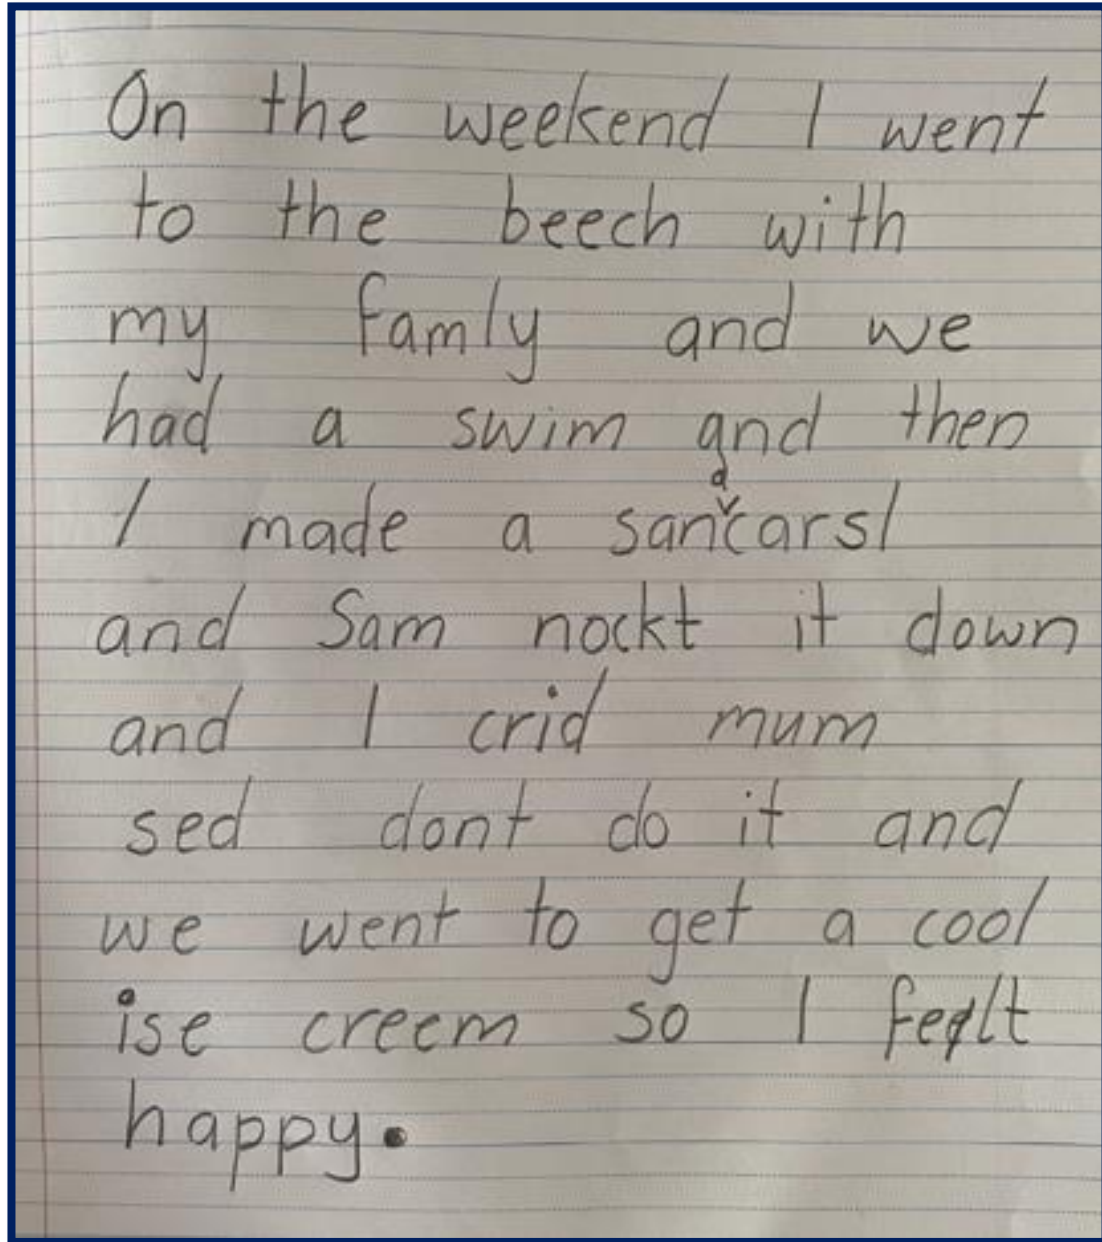 On the weekend I went
to the beech with
my famly and we
had a swim and then
I made a sandcarsl
and Sam nockt it down
and I crid mum
sed dont do it and
we went to get a cool
ise creem so I felt
happy.